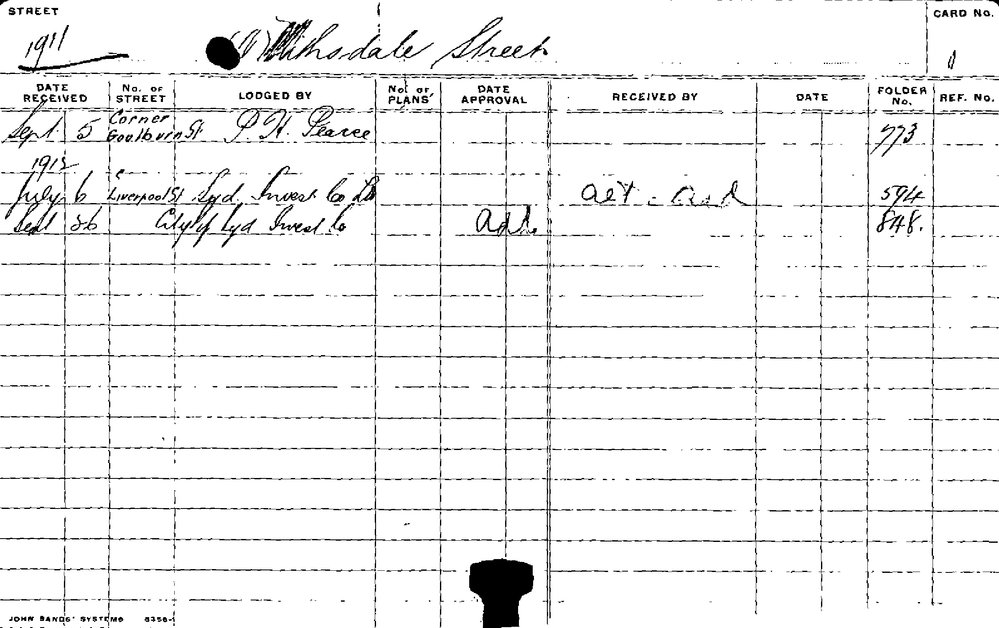 STREET
CARD No.
1911
Street
1
DATE RECEIVED
No. OF STREET
LODGED BY
No. OF PLANS
DATE APPROVAL
RECEIVED BY
DATE
FOLDER No.
REF. No.
Sept 5 Corner Goulburn St P. H. Pearce 773
1912
July 6 Liverpool St Syd. Invest Co Ld alt. add 594
Sept 26 City of Syd Invest Co add. 848.
JOHN SANDS' SYSTEMS 6356-1